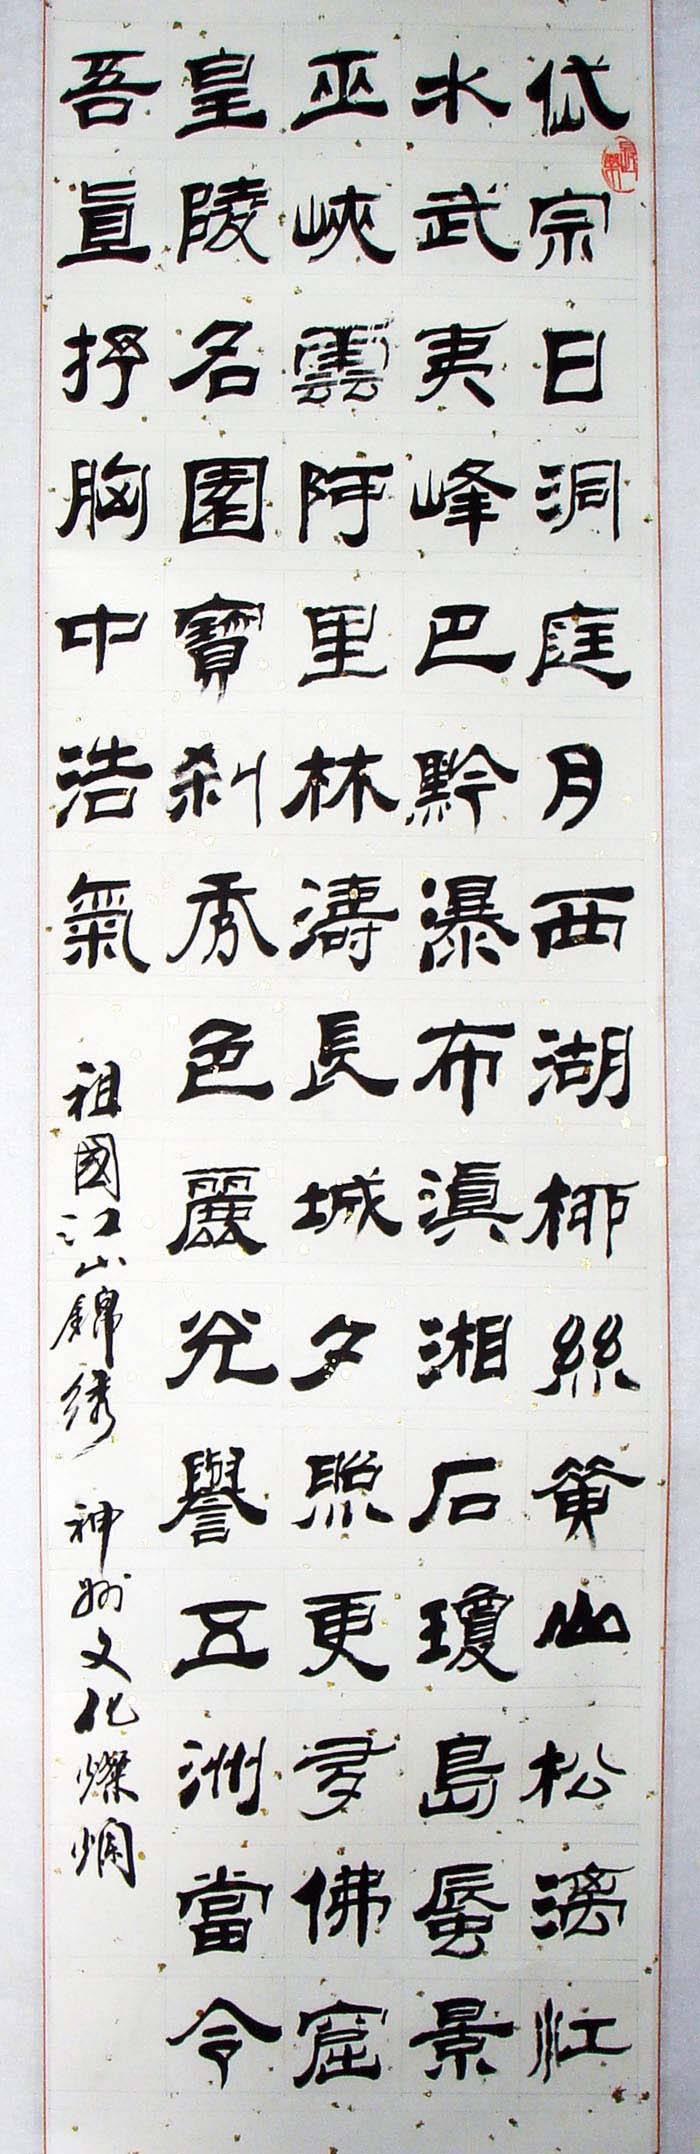 岱宗日洞庭月西湖柳絲黄山松漓江
水武夷峰巴黔瀑布滇湘石瓊島蜃景
巫峽雲阿里林濤長城夕照更多佛窟
皇陵名園寶刹秀色麗光譽五洲當令
吾直抒胸中浩氣
祖國江山錦绣 神州文化燦爛